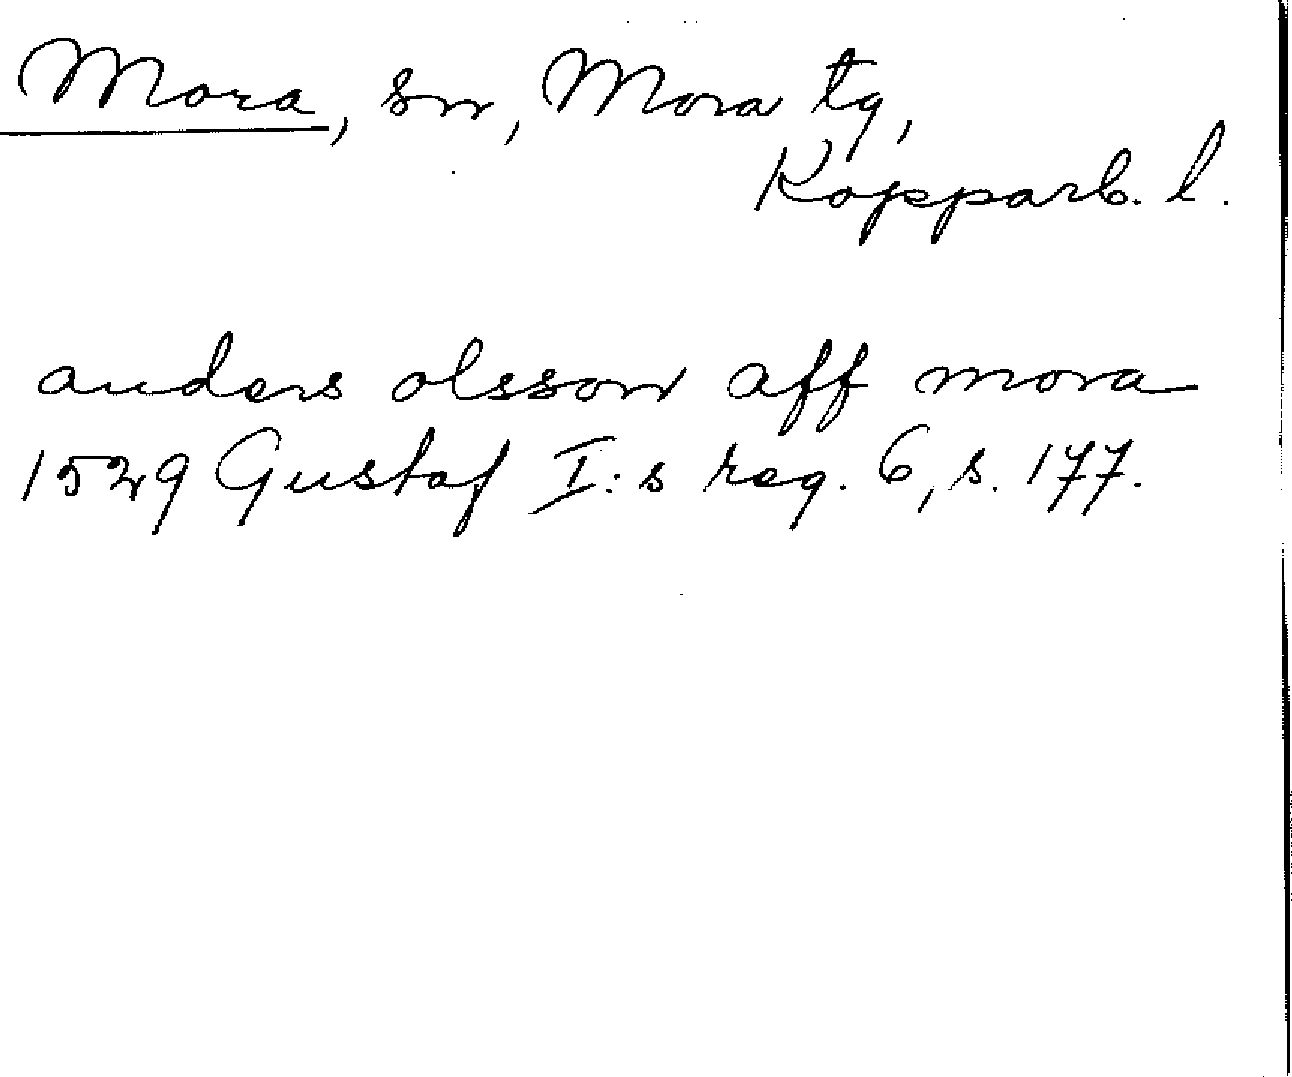 Mora, sn, Mora tg,
Kopparb. l.
anders olsson aff mora
1529 Gustaf I:s reg. 6, s. 177.